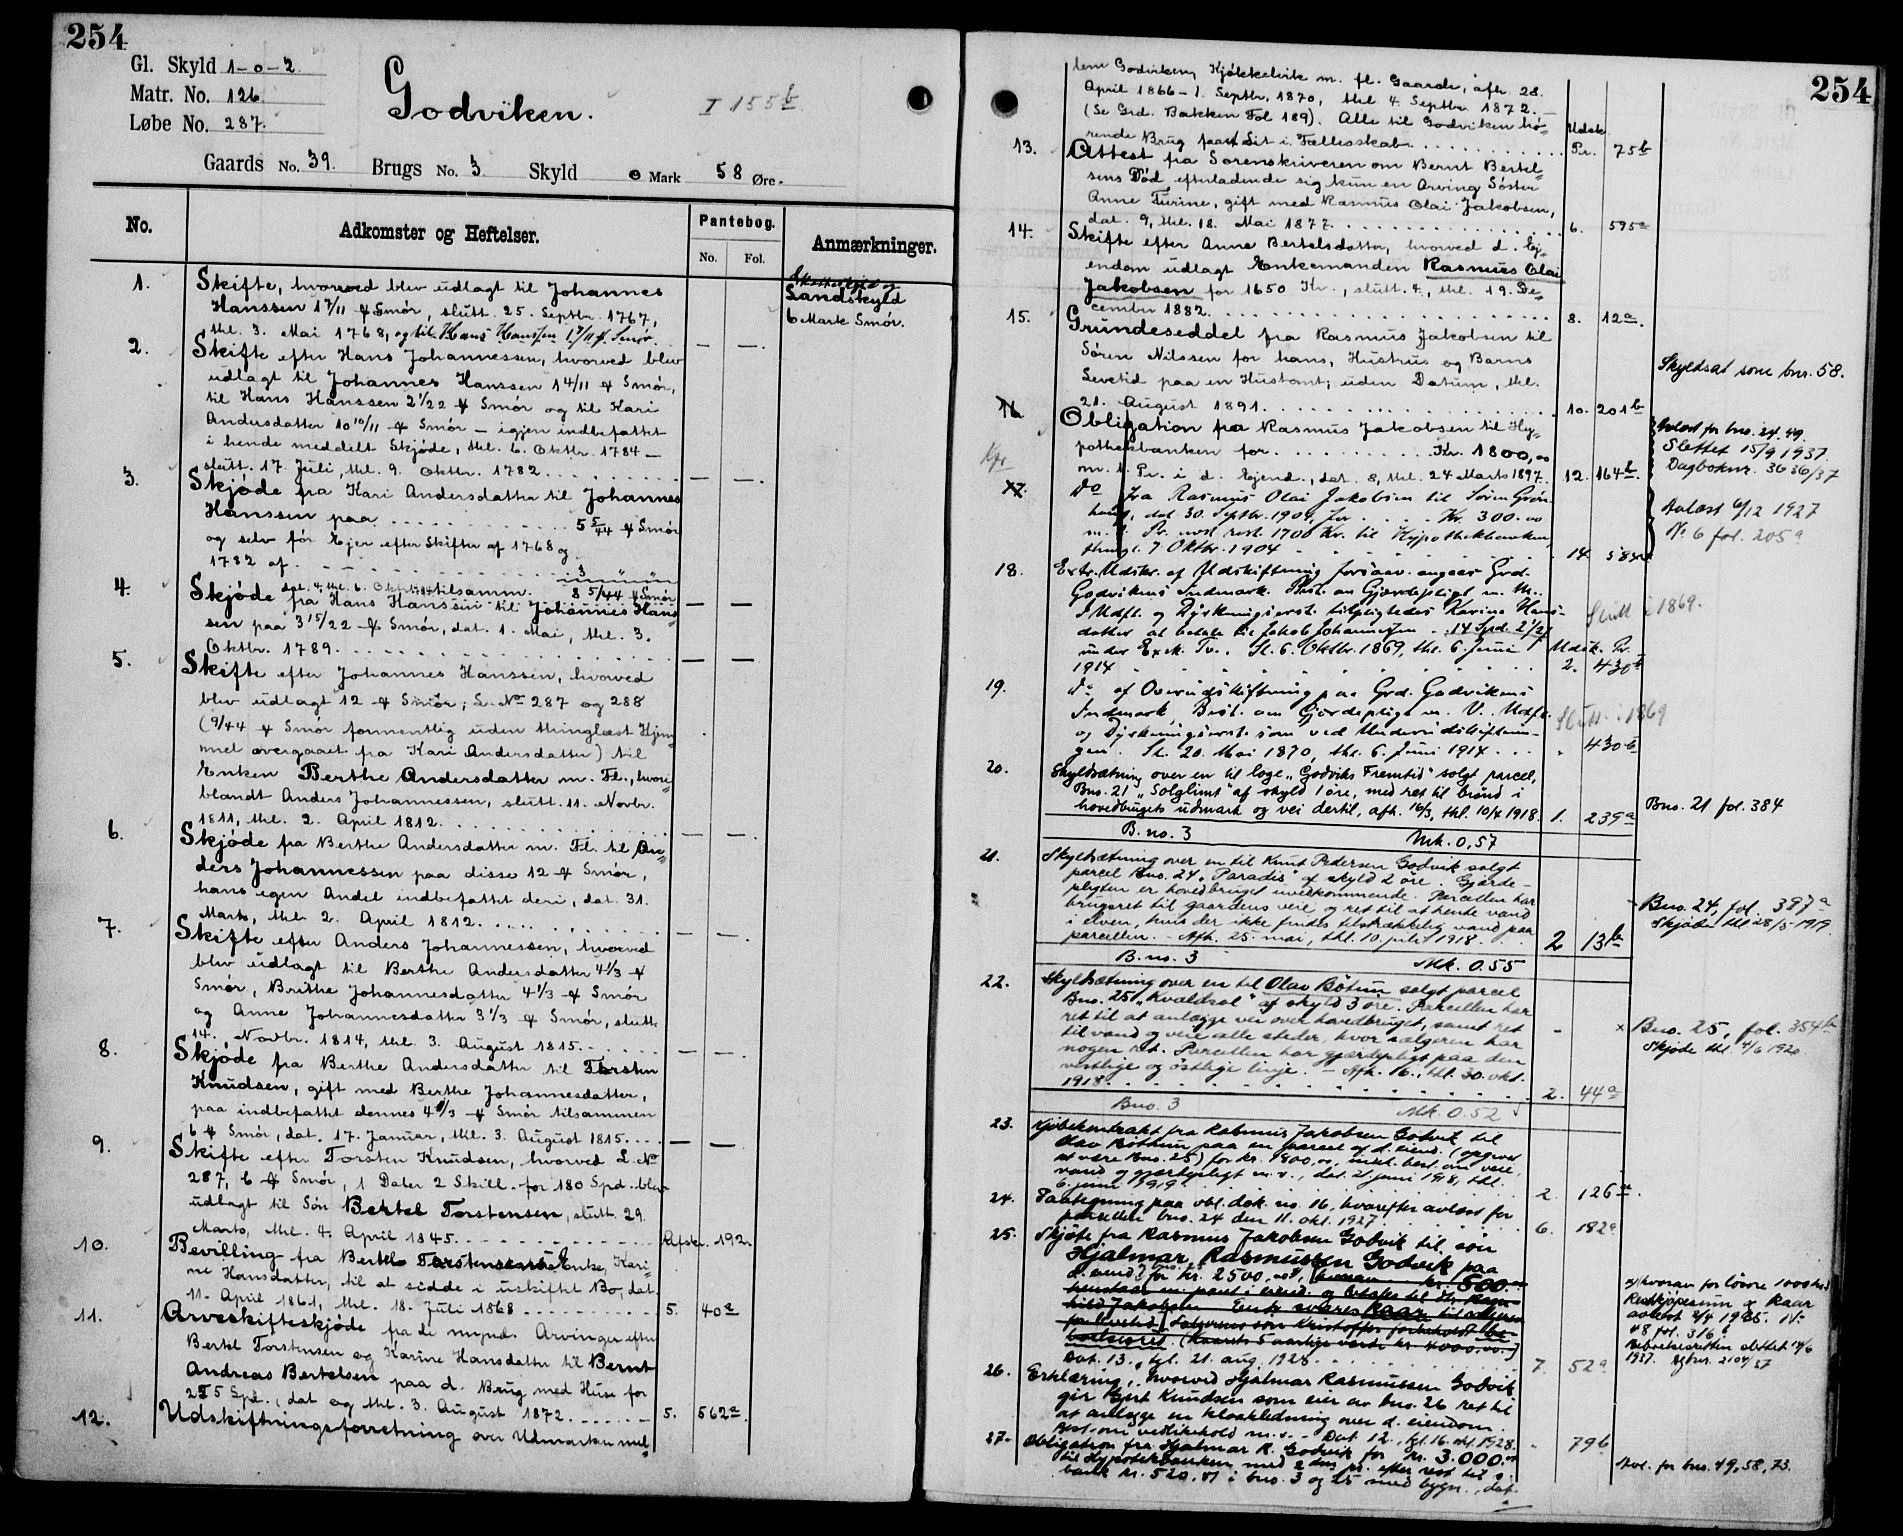 254
Gl. Skyld 1-0-2
Matr. No. 126.
Løbe No. 287.
Godviken.
I 155b
Gaards No. 39. Brugs No. 3 Skyld 0 Mark 58 Øre.
No. Adkomster og Heftelser. Pantebog. Anmærkninger.
No. Fol.
1. Skifte, hvorved blev udlagt til Johannes
Hanssen 1 7/11 ⁂ Smør, slutt. 25. Septbr. 1767,
thl. 3. Mai 1768, og til Hans Hanssen
Landskyld
6 Mark Smør.
2. Skifte efter Hans Johannessen, hvorved blev
udlagt til Johannes Hanssen 1 4/11 Smør,
til Hans Hanssen 2 1/22 Smør og til Kari
Andersdatter 10 10/11 Smør – igjen indbefattet
i hende meddelt Skjøde, thl. 6. Oktbr. 1784 –
slutt. 17. Juli, thl. 9. Oktbr. 1782
3. Skjøde fra Kari Andersdatter til Johannes
Hanssen paa 5 5/44 Smør
og selv før Ejer efter Skifter af 1768 og
1782 af 3 " "
thl. 6. Oktbr. 1784 tilsamm. 8 5/44 Smør
4. Skjøde fra Hans Hanssen til Johannes Hans-
sen paa 3 15/22 Smør, dat. 1. Mai, thl. 3.
Oktbr. 1789.
5. Skifte efter Johannes Hanssen, hvorved
blev udlagt 12 Smør; L. No 287 og 288
(9/44 Smør formentlig uden thinglæst Hjem-
mel overgaaet fra Kari Andersdatter) til
Enken Berthe Andersdatter m. Fl., hvori-
blandt Anders Johannessen, slutt. 11. Novbr.
1811, thl. 2. April 1812.
6. Skjøde fra Berthe Andersdatter m. Fl. til An-
ders Johannessen paa disse 12 Smør,
hans egen Andel indbefattet deri, dat. 31.
Marts, thl. 2. April 1812.
7. Skifte efter Anders Johannessen, hvorved
blev udlagt til Berthe Andersdatter 4 1/3
Smør, Brithe Johannesdatter 4 1/3 Smør
og Anne Johannesdatter 3 1/3 Smør, slutt.
14. Novbr. 1814, thl. 3. August 1815.
8. Skjøde fra Berthe Andersdatter til Torsten
Knudsen, gift med Berthe Johannesdatter,
paa indbefattet dennes 4 1/3 Smør tilsammen
6 Smør, dat. 17. Januar, thl. 3. August 1815.
9. Skifte efter Torsten Knudsen, hvorved L. No
287, 6 Smør, 1 Daler 2 Skill. for 180 Spd. blev
udlagt til Søn Bertel Torstensen, slutt. 29.
Marts, thl. 4. April 1845. Afskr. 192.
10. Bevilling fra Bertel Torstensens Enke, Kari-
ne Hansdatter, til at sidde i uskiftet Bo, dat.
11. April 1861, thl. 18. Juli 1868 5. 40a
11. Arveskifteskjøde fra de mynd. Arvinger efter
Bertel Torstensen og Karine Hansdatter til Bernt
Andreas Bertelsen paa d. Brug med Huse for
255 Spd., dat og thl. 3. August 1872. 5. 562a.
12. Udskiftningsforretning over Udmarken mel-
254
lem Godviken, Kjøkkelvik m. fl. Gaarde, afh. 28.
April 1866 – 1. Septbr. 1870, thl 4. Septbr. 1872. –
(Se Grd. Bakken Fol 189). Alle til Godviken hø-
rende Brug faar Sit i Fællesskab. Udsk. Pr. 75b
13. Attest fra Sorenskriveren om Bernt Bertel-
sens Død efterladende sig kun en Arving Søster
Anne Turine, gift med Rasmus Olai Jakobsen,
dat. 9, thl. 18. Mai 1877. 6. 595a
14. Skifte efter Anne Bertelsdatter, hvorved d. Ej-
endom udlagt Enkemanden Rasmus Olai
Jakobsen for 1650 Kr., slutt. 4., thl. 19. De-
cember 1882. 8. 12a.
15. Grundeseddel fra Rasmus Jakobsen til
Søren Nilssen for hans, Hustrus og Barns
Levetid paa en Hustomt; uden Datum, thl.
21. August 1891. 10. 201b
Skyldsat som bnr. 58.
16. Obligation fra Rasmus Jakobsen til Hy-
pothekbanken for Kr. 1800,00
m. 1. Pr. i d. Ejend., dat. 8, thl. 24 Marts 1897. 12. 164b.
Avløst for bno. 24. 49.
Slettet 15/9 1937.
Dagboknr. 3636/37
17. Do fra Rasmus Olai Jakobsen til Søren Grøn-
haug, dat. 30. Septbr. 1904, for Kr. 300.00
m. Pr. næst rest. 1700 Kr. til Hypothekbanken
thingl. 7. Oktbr. 1904 14. 584
Avløst 6/12 1927
No 6 fol. 205a
18. Extr. Udskr. af Udskiftning forsaav. angaar Grd.
Godvikens Indmark. Best. om Gjerdepligt m. M..
I Udft. og Dyrkningserst. tilpligtedes Karine Hans-
datter at betale til Jakob Johannesen 14 Spd. 2 1/2
under Exek. Tv.. Sl. 6. Oktbr. 1869, thl. 6. Juni
1914 Udsk. Pr. 2. 430b
Slutt i 1869.
19. Do af Overudskiftning paa Grd. Godvikens
Indmark, Best. om Gjerdepligt m. V. Udft.
og Dyrkningserst. som ved Underudskiftnin-
gen. Sl. 20. Mai 1870, thl. 6. Juni 1914 " 430b
Slutt. i 1869
20. Skyldsætning over en til loge „Godviks Fremtid" solgt parcel,
Bno. 21 „Solglimt" af skyld 1 øre, med ret til brønd i
hovedbrugets udmark og vei dertil, afh. 16/3, thl. 10/4 1918. 1. 239a
Bno. 21 fol. 384
B. no. 3 Mk. 0,57
21. Skyldsætning over en til Knut Pedersen Godvik solgt
parcel Bno. 24 „Paradis" af skyld 2 øre. Gjerde-
pligten er hovedbruget uvedkommende. Parcellen har
brugsret til gaardens veie og ret til at hente vand
i elven, hvis der ikke findes tilstrækkelig vand paa
parcellen. – Afh. 25. mai, thl. 10. juli 1918. 2 13b
Bno. 24, fol. 397a
Skjøde thl. 28/5 1919.
B. no. 3 Mk. 0.55
22. Skyldsætning over en til Olav Bøtun solgt parcel
Bno. 25 „Kvældsol" af skyld 3 øre. Parcellen har
ret til at anlægge vei over hovedbruget, samt ret
til vand og veie alle steder, hvor sælgeren har
nogen ret. Parcellen har gjærdepligt paa den
vestlige og østlige linje. – Afh. 16., thl. 30. okt.
1918. 2. 44a
x Bno. 25, fol. 354b
Skjøde thl. 4/6 1920.
Bno. 3 Mk. 0.52
23. Kjøbekontrakt fra Rasmus Jakobsen Godvik til
Olav Bøthun paa en parcel af d. eiend. (opgivet
at være Bno. 25) for kr. 1800,00, inkl. best. om veie,
vand og gjærdepligt m. v., dat. 21. juni 1918, thl.
6. juni 1919. 2. 126a.
24. Paategning paa obl. dok. no. 16, hvorefter avløst for
parcellen bno. 24 den 11. okt. 1927. 6. 182a
25. Skjøte fra Rasmus Jakobsen Godvik til søn
Hjalmar Rasmussen Godvik paa
d. eiend. for kr. 2500,00, hvorav kr. 500.00
Dat. 13., tgl. 21. aug. 1928. 7. 52a
hvorav for løsøre 1000 kr.
26. Erklæring, hvorved Hjalmar Rasmussen Godvik
gir Gert Knudsen som eier av bno. 26 ret til
at anlægge en kloakledning over d. eiendom.
Best. om vedlikehold m. v. – Dat. 12., tgl. 16. okt. 1928. " 79b
27. Obligation fra Hjalmar R. Godvik for kr. 3.000.00
til Hypotekbanken med 2den pr. efter rest til s.
bank kr. 520,41 i bno. 3 og 25 med bygn., dat.
Avl. for bno. 49, 58, 73.